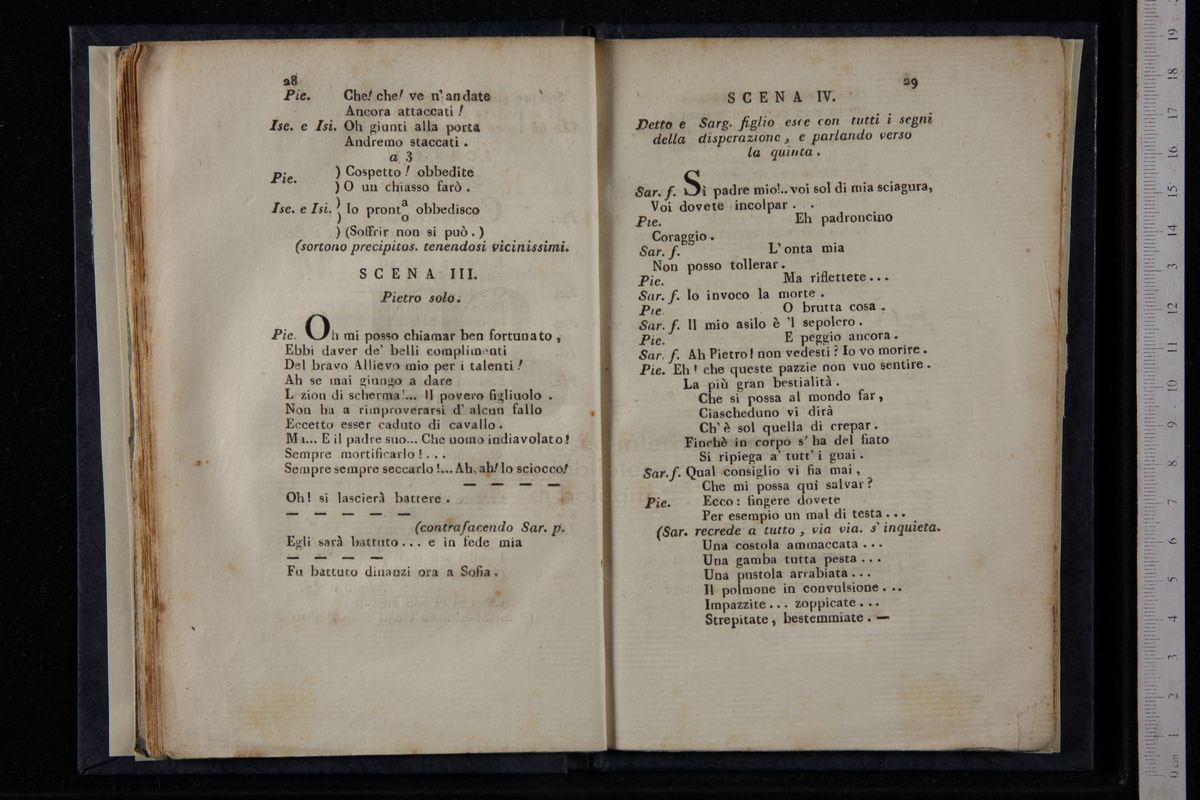 28
Pie. Che! che! ve n' andate
Ancora attaccati !
Ise. e Isi. Oh giunti alla porta
Andremo staccati .
a 3
Pie. ) Cospetto ! obbedite
) O un chiasso farò .
Ise. e Isi. ) Io pronta/o obbedisco
) (Soffrir non si può . )
(sortono precipitos. tenendosi vicinissimi.
SCENA III.
Pietro solo.
Pie. Oh mi posso chiamar ben fortunato ,
Ebbi daver de' belli complimenti
Del bravo Allievo mio per i talenti !
Ah se mai giungo a dare
L zion di scherma!... Il povero figliuolo .
Non ha a rimproverarsi d' alcun fallo
Eccetto esser caduto di cavallo .
Ma... E il padre suo... Che uomo indiavolato !
Sempre mortificarlo ! . . .
Sempre sempre seccarlo !... Ah, ah! lo sciocco!
— — — —
Oh! si lascierà battere .
— — — — —
(contrafacendo Sar. p.
Egli sarà battuto . . . e in fede mia
— — — —
Fu battuto dinanzi ora a Sofia .
29
SCENA IV.
Detto e Sarg. figlio esce con tutti i segni
della disperazione , e parlando verso
la quinta .
Sar. f. Sì padre mio!.. voi sol di mia sciagura,
Voi dovete incolpar . .
Pie. Eh padroncino
Coraggio .
Sar. f. L' onta mia
Non posso tollerar .
Pie. Ma riflettete . . .
Sar. f. Io invoco la morte .
Pie O brutta cosa .
Sar. f. Il mio asilo è 'l sepolcro .
Pie. E peggio ancora .
Sar. f. Ah Pietro! non vedesti ? Io vo morire .
Pie. Eh ! che queste pazzie non vuo sentire .
La più gran bestialità .
Che si possa al mondo far ,
Ciascheduno vi dirà
Ch' è sol quella di crepar .
Finchè in corpo s' ha del fiato
Si ripiega a' tutt' i guai .
Sar. f. Qual consiglio vi fia mai ,
Che mi possa qui salvar ?
Pie. Ecco : fingere dovete
Per esempio un mal di testa . . .
(Sar. recrede a tutto , via via. s' inquieta.
Una costola ammaccata . . .
Una gamba tutta pesta . . .
Una pustola arrabiata . . .
Il polmone in convulsione . . .
Impazzite . . . zoppicate . . .
Strepitate , bestemmiate . —
0 cm 1 2 3 4 5 6 7 8 9 10 11 12 13 14 15 16 17 18 19